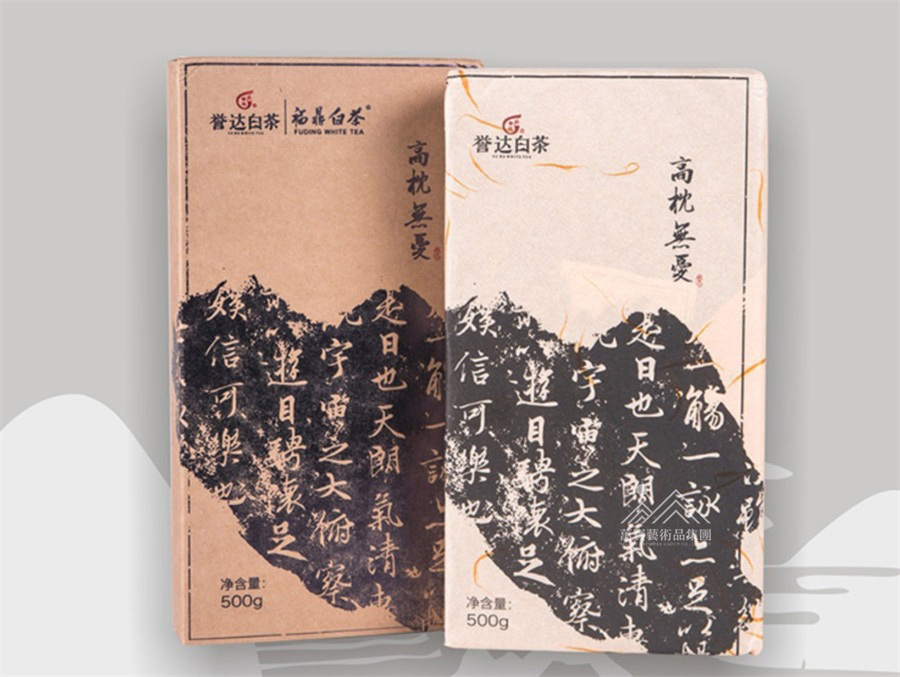 誉达白茶
YU DA WHITE TEA
福鼎白茶®
FUDING WHITE TEA
高枕無憂
一觴一詠亦
是日也天朗氣清
宇宙之大俯察
遊目騁懷足
娛信可樂也
净含量：
500g
誉达白茶
YU DA WHITE TEA
高枕無憂
一觴一詠亦足
是日也天朗氣清
宇宙之大俯察
遊目騁懷足
娛信可樂也
净含量：
500g
藝術品集團